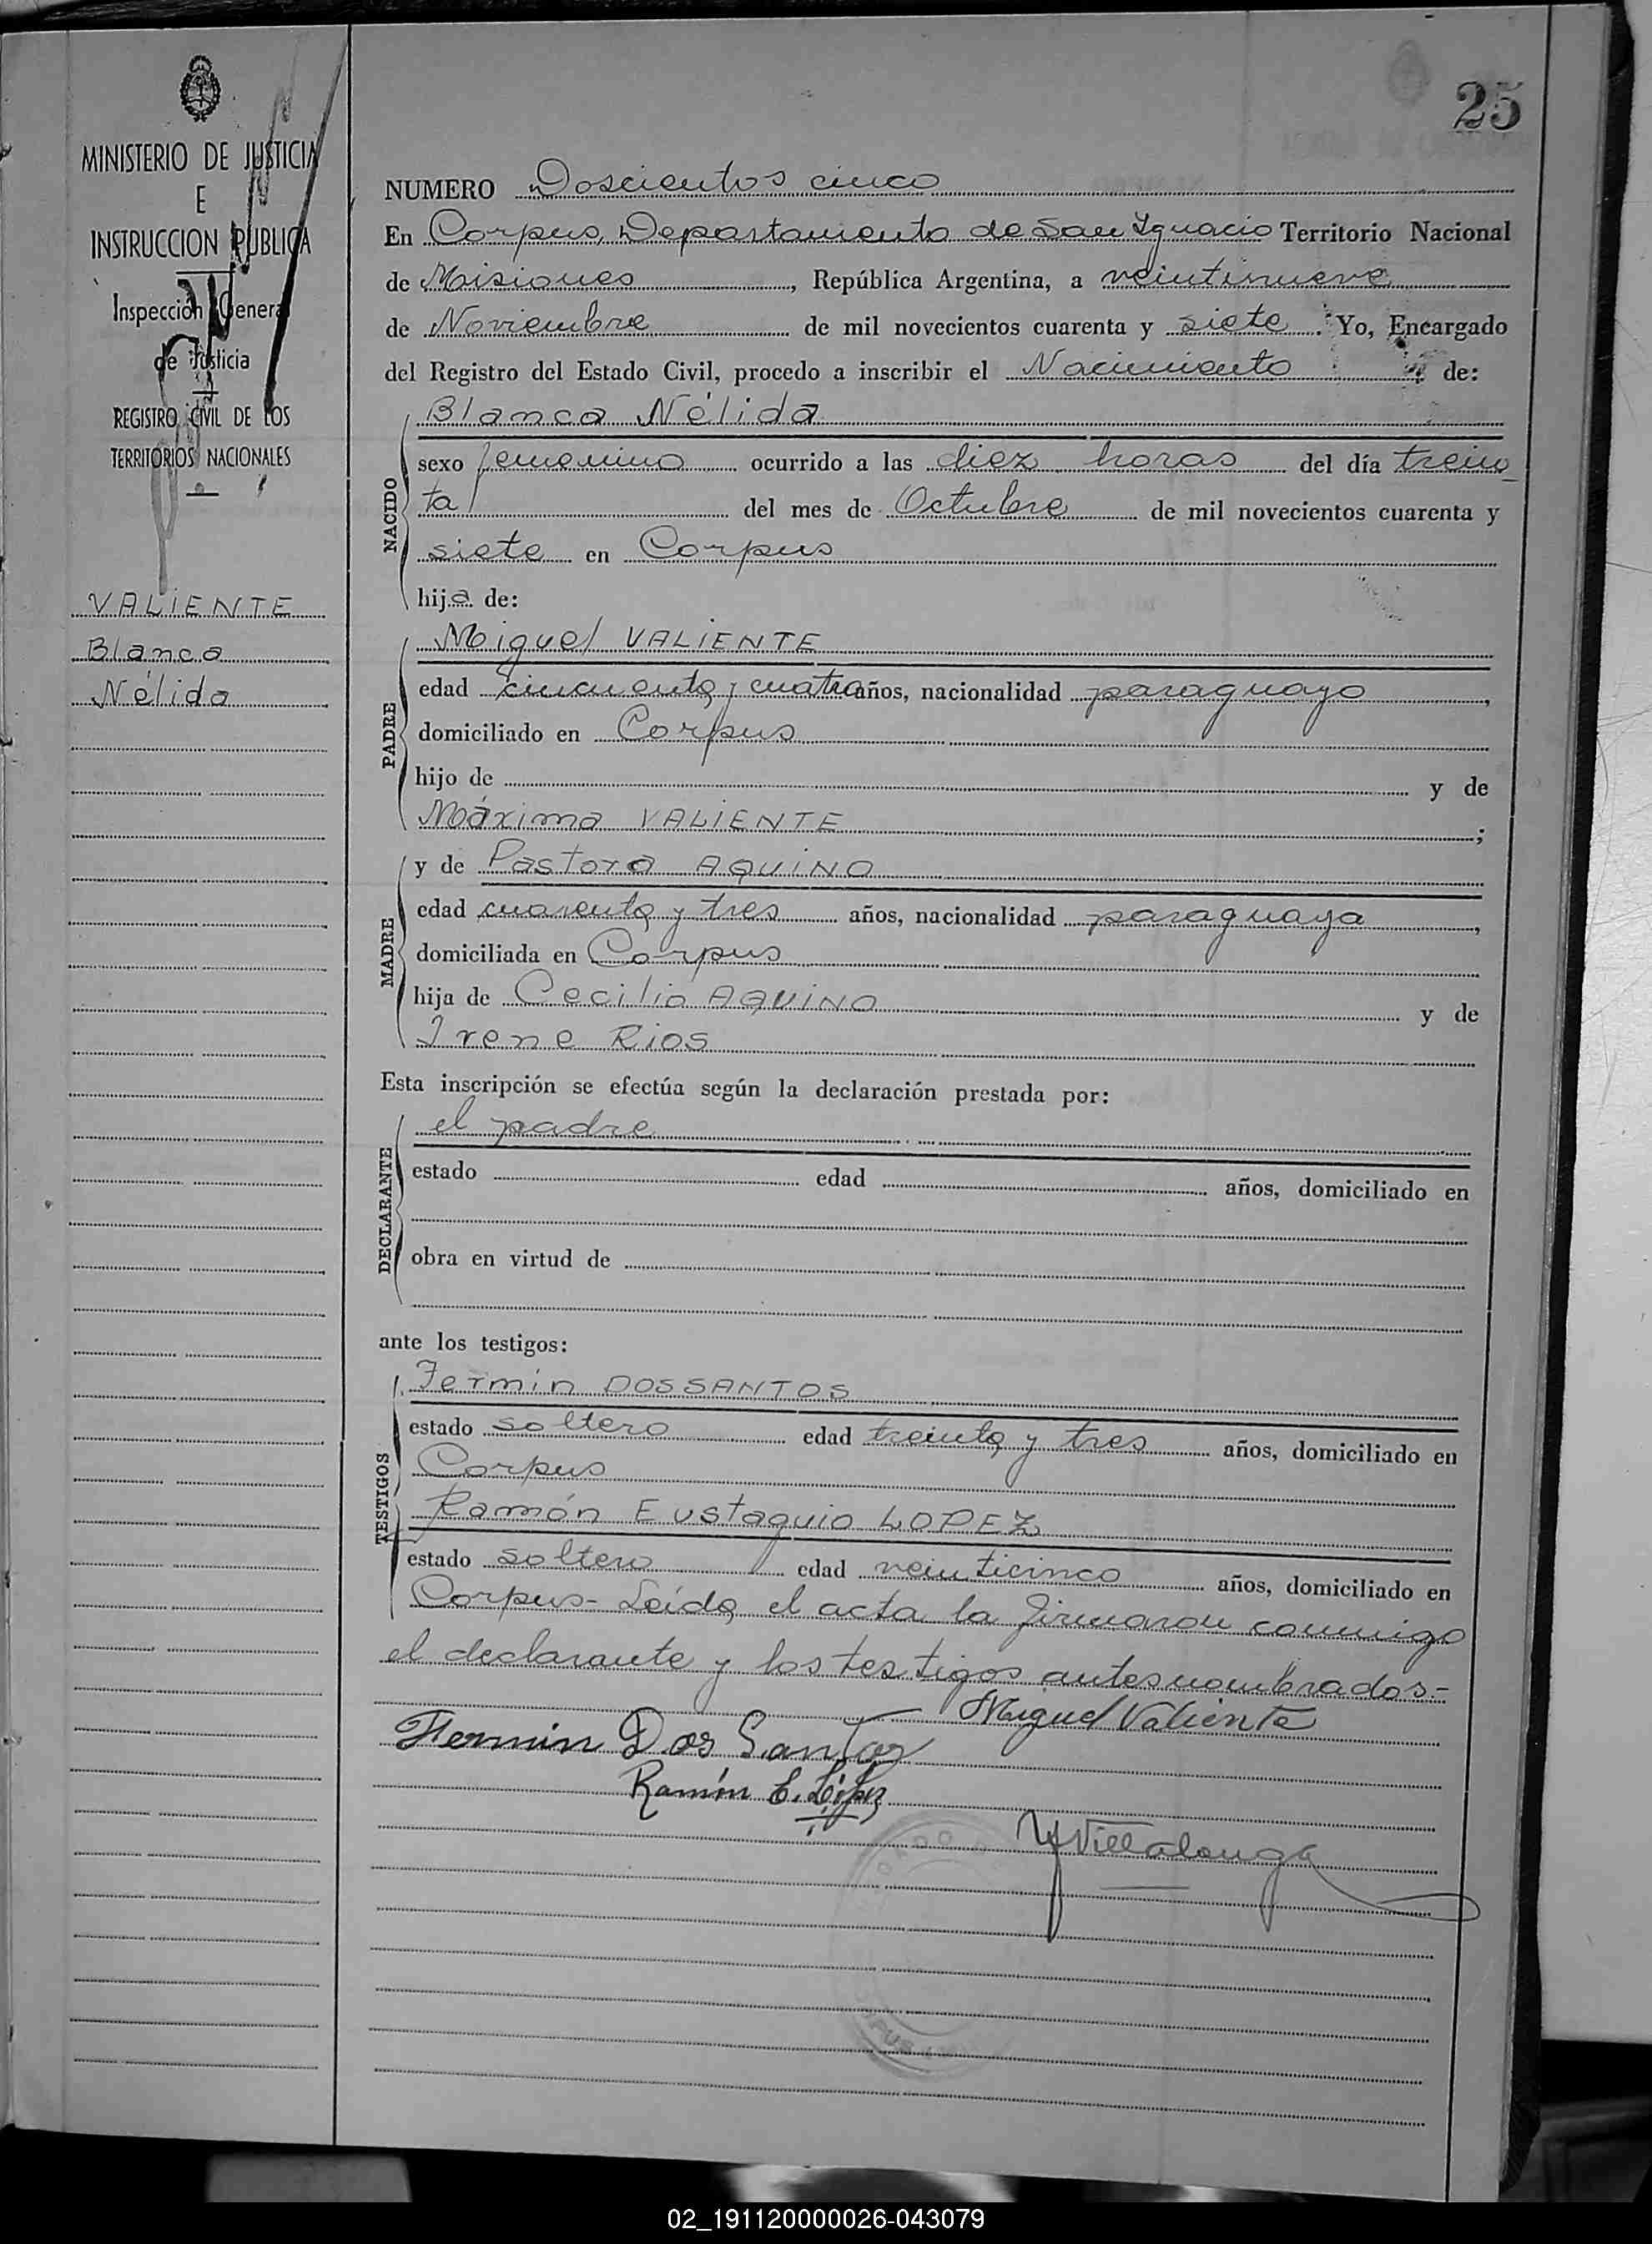 25
MINISTERIO DE JUSTICIA
E
INSTRUCCION PUBLICA
Inspección General
de Justicia
REGISTRO CIVIL DE LOS
TERRITORIOS NACIONALES
VALIENTE
Blanca
Nélida
NUMERO Doscientos cinco
En Corpus, Departamento de San Ignacio Territorio Nacional
de Misiones, República Argentina, a veintinueve
de Noviembre de mil novecientos cuarenta y siete. Yo, Encargado
del Registro del Estado Civil, procedo a inscribir el Nacimiento de:
Blanca Nélida
NACIDO
sexo femenino ocurrido a las diez horas del día trein
ta del mes de Octubre de mil novecientos cuarenta y
siete en Corpus
hija de:
Miguel VALIENTE
PADRE
edad cincuenta y cuatro años, nacionalidad paraguayo,
domiciliado en Corpus
hijo de y de
Máxima VALIENTE;
MADRE
y de Pastora AQUINO
edad cuarenta y tres años, nacionalidad paraguaya,
domiciliada en Corpus
hija de Cecilio AQUINO y de
Irene Rios
Esta inscripción se efectúa según la declaración prestada por:
el padre
DECLARANTE
estado edad años, domiciliado en
obra en virtud de
ante los testigos:
Fermin DOSSANTOS
TESTIGOS
estado soltero edad treinta y tres años, domiciliado en
Corpus
Ramón Eustaquio LOPEZ
estado soltero edad veinticinco años, domiciliado en
Corpus- Leída el acta la firmaron conmigo
el declarante y los testigos antes nombrados.-
Miguel Valiente
Fermin Dos Santos
Ramón E. López
Villalonga
02_191120000026-043079